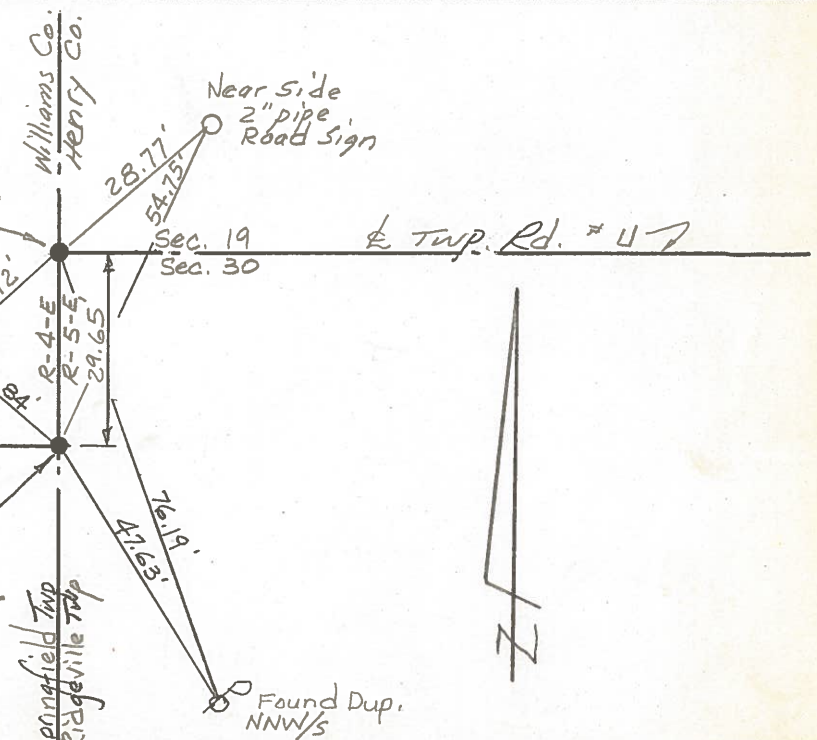 Williams Co.
Henry Co.
Near Side
2" pipe
Road Sign
28.77'
54.75'
Sec. 19
℄ Twp. Rd. # U
Sec. 30
R-4-E
R-5-E
29.65'
84'
76.19'
47.63'
pringfield Twp
idgeville Twp
Found Dup.
NNW/S
N